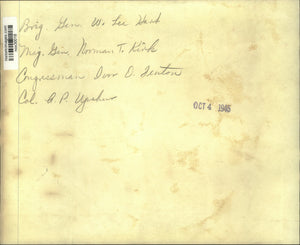 Brig. Gen. W. Lee Hart
Maj. Gen. Norman T. Kirk
Congressman Ivor D. Fenton
Col. A. P. Upshur
OCT 4 1945